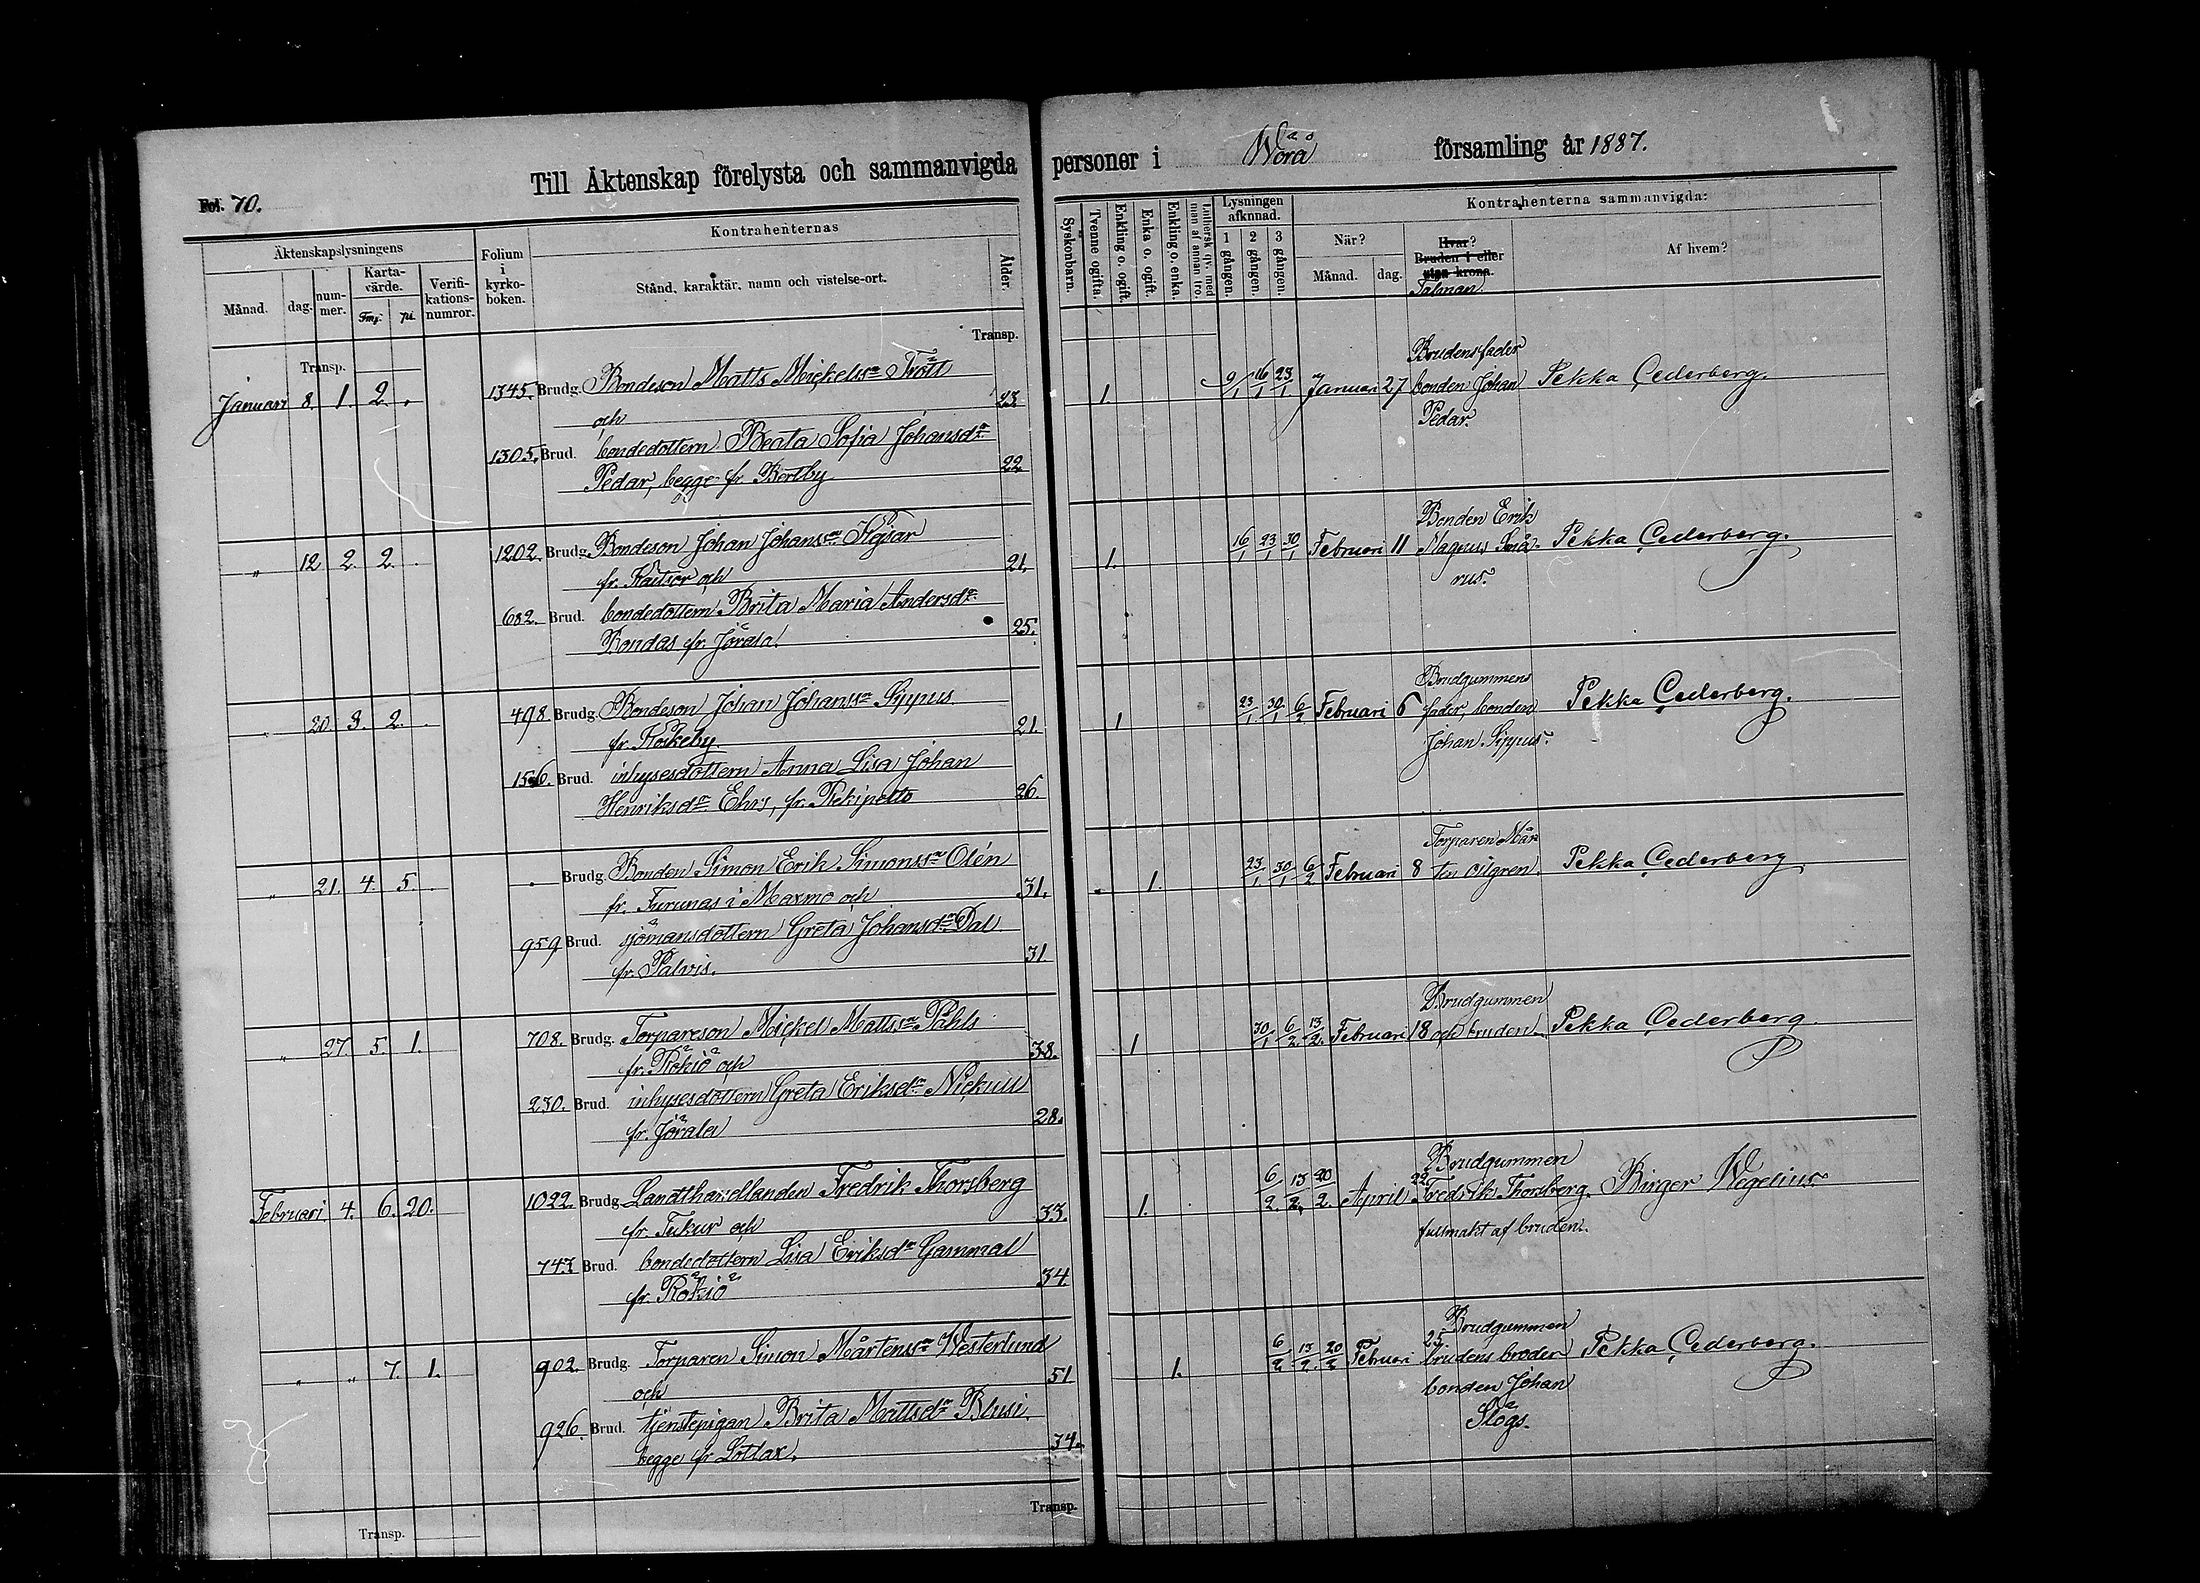 Fol. 70.
Till Äktenskap förelysta och sammanvigda personer i Wörå församling år 1887.
Äktenskapslysningens
Månad. dag. num-mer. Karta-värde. Fmg. pi. Verifi-kations-numror.
Folium i kyrko-boken.
Kontrahenternas
Stånd, karaktär, namn och vistelse-ort.
Ålder.
Syskonbarn. Tvenne ogifta. Enkling o. ogift. Enka o. ogift. Enkling o. enka. Luthersk qv. med man af annan tro.
Lysningen afkunnad.
1 gången. 2 gången. 3 gången.
Kontrahenterna sammanvigda:
När? Månad. dag.
Hvar? Bruden i eller utan krona. Talman
Af hvem?
Transp. Transp.
Januari 8. 1. 2. . 1345. Brudg. Bondeson Matts Mickelssn Trött
och 23
1305. Brud. bondedottern Beata Sofia Johansdr
Pedar, begge fr. Bertby 22
1. 9/1 16/1 23/1 Januari 27 Brudens fader
bonden Johan
Pedar.
Pekka Cederberg.
„ 12 2. 2. . 1202. Brudg. Bondeson Johan Johanssn
fr. Kaitsor och 21.
682. Brud. bondedottern Brita Maria Andersdr
Bondas fr. Jörala. 25.
1. 16/1 23/1 30/1 Februari 11 Bonden Erik
Magnus Små-
rus.
Pekka Cederberg.
„ 20. 3. 2. . 498. Brudg. Bondeson Johan Johanssn Sippus
fr. Rökeby. 21.
156. Brud. inhysesdottern Anna Lisa Johan
Henriksdr Ehrs, fr. Rekipelto 26.
1 23/1 30/1 6/2 Februari 6 Brudgummens
fader, bonden
Johan Sippus.
Pekka Cederberg.
„ 21. 4. 5 . . Brudg. Bonden Simon Erik Simonssn Olén
fr. Tuvunas i Maxmo och 31.
959 Brud. sjömansdottern Greta Johansdr Dal
fr. Palvis. 31.
1. 23/1 30/1 6/2 Februari 8 Torparen Mår-
ten Oilgren.
Pekka Cederberg
„ 27. 5. 1. 708. Brudg. Torpareson Mickel Mattssn Påhls
fr. Rökiö och 38.
230. Brud. inhysesdottern Greta Eriksdr Nickull
fr. Jörala 28.
1 30/1 6/2 13/2 Februari 18 Brudgummen
och bruden
Pekka Cederberg
Februari 4. 6. 20. 1022. Brudg. Landthandlanden Fredrik Thorsberg
fr. Tukur och 33.
743 Brud. bondedottern Lisa Eriksdr Gammal
fr. Rökiö 34.
1. 6/2 13/2 20/2 April 22 Brudgummen
Fredrik Thorsberg.
fullmakt af bruden.
Birger Wegelius
„ „ 7. 1. 902. Brudg. Torparen Simon Mårtenssn Westerlund
och 51
926. Brud. tjenstepigan Brita Mattsdr Blusi.
begge fr. Lotlax. 34.
1. 6/2 13/2 20/2 Februari 25 Brudgummen
brudens broder
bonden Johan
Slögs.
Pekka Cederberg.
Transp. Transp.